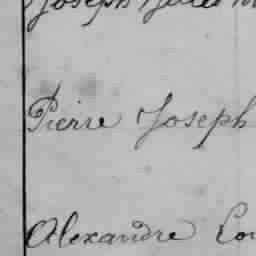 Joseph Jules
Pierre Joseph
Alexandre